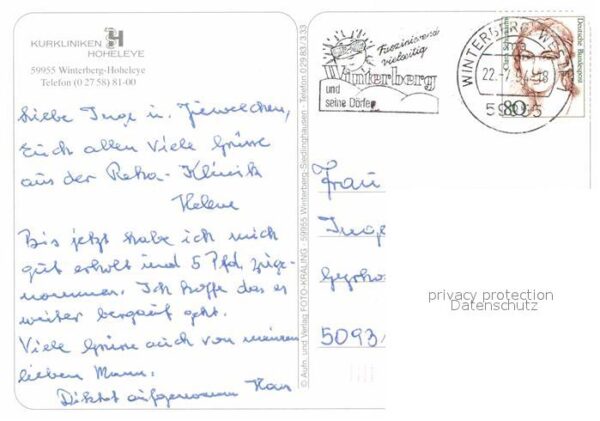 KURKLINIKEN
HOHELEYE
59955 Winterberg-Hoheleye
Telefon (0 27 58) 81-00
Liebe Inge u.
Euch allen viele Grüsse
aus der Reha-Klinik
Helene
Bis jetzt habe ich mich
gut erholt und 5 Pfd. zuge-
nommen. Ich hoffe das es
weiter bergauf geht.
Viele Grüsse auch von meinem
lieben Mann.
Diktat aufgenommen Hans
© Aufn. und Verlag FOTO-KRALING · 59955 Winterberg-Siedlinghausen · Telefon 0 29 83 / 3 33
Faszinierend
vielseitig
Winterberg
und
seine Dörfer
WINTERBERG, WESTF
59955
Deutsche Bundespost
80
Frau
Inge
5093
privacy protection
Datenschutz